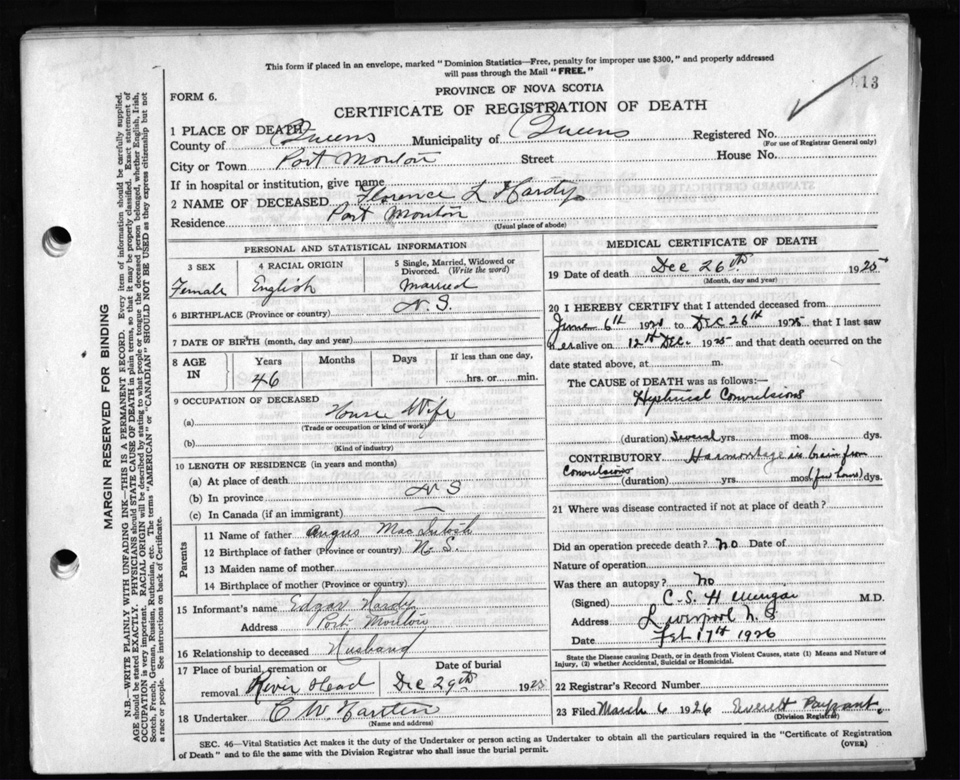 This form if placed in an envelope, marked "Dominion Statistics—Free, penalty for improper use $300," and properly addressed
will pass through the Mail "FREE."
PROVINCE OF NOVA SCOTIA
13
FORM 6.
CERTIFICATE OF REGISTRATION OF DEATH
1 PLACE OF DEATH
County of Queens Municipality of Queens Registered No.
(For use of Registrar General only)
City or Town Port Mouton Street House No.
If in hospital or institution, give name
2 NAME OF DECEASED Florence L Hardy
Residence Port Mouton
(Usual place of abode)
PERSONAL AND STATISTICAL INFORMATION
3 SEX 4 RACIAL ORIGIN 5 Single, Married, Widowed or
Divorced. (Write the word)
Female English Married
6 BIRTHPLACE (Province or country) N. S.
7 DATE OF BIRTH (month, day and year)
8 AGE IN Years Months Days If less than one day,
46 hrs. or min.
9 OCCUPATION OF DECEASED
(a) House Wife
(Trade or occupation or kind of work)
(b)
(Kind of industry)
10 LENGTH OF RESIDENCE (in years and months)
(a) At place of death
(b) In province N S
(c) In Canada (if an immigrant)
Parents
11 Name of father Angus MacIntosh
12 Birthplace of father (Province or country) N. S.
13 Maiden name of mother
14 Birthplace of mother (Province or country)
15 Informant's name Edgar Hardy
Address Port Mouton
16 Relationship to deceased Husband
17 Place of burial, cremation or Date of burial
removal River Head Dec 29th 1925
18 Undertaker C W
(Name and address)
MEDICAL CERTIFICATE OF DEATH
19 Date of death Dec 26th 1925
(Month, day and year)
20 I HEREBY CERTIFY that I attended deceased from
June 6th 192 to Dec 26th 1925 that I last saw
her alive on 12th Dec. 1925 and that death occurred on the
date stated above, at m.
The CAUSE of DEATH was as follows:—
Convulsions
(duration) Several yrs. mos. dys.
CONTRIBUTORY in brain from
Convulsions
(duration) yrs. mos. (few hours) dys.
21 Where was disease contracted if not at place of death?
Did an operation precede death? no Date of
Nature of operation
Was there an autopsy? no
(Signed) C. S. M.D.
Address Liverpool N. S.
Date Feb 17th 1926
State the Disease causing Death, or in death from Violent Causes, state (1) Means and Nature of
Injury, (2) whether Accidental, Suicidal or Homicidal.
22 Registrar's Record Number
23 Filed March 6 1926 Everett
(Division Registrar)
SEC. 46—Vital Statistics Act makes it the duty of the Undertaker or person acting as Undertaker to obtain all the particulars required in the "Certificate of Registration
of Death" and to file the same with the Division Registrar who shall issue the burial permit.
(OVER)
MARGIN RESERVED FOR BINDING
N.B.—WRITE PLAINLY WITH UNFADING INK—THIS IS A PERMANENT RECORD. Every item of information should be carefully supplied.
AGE should be stated EXACTLY. PHYSICIANS should STATE CAUSE OF DEATH in plain terms, so that it may be properly classified. Exact statement of
OCCUPATION is very important. RACIAL ORIGIN will be described by stating to what people or tongue the deceased person belonged, whether English, Irish,
Scotch, French, German, Russian, Ruthenian, etc. The terms "AMERICAN" or "CANADIAN" SHOULD NOT BE USED as they express citizenship but not
a race or people. See instructions on back of Certificate.